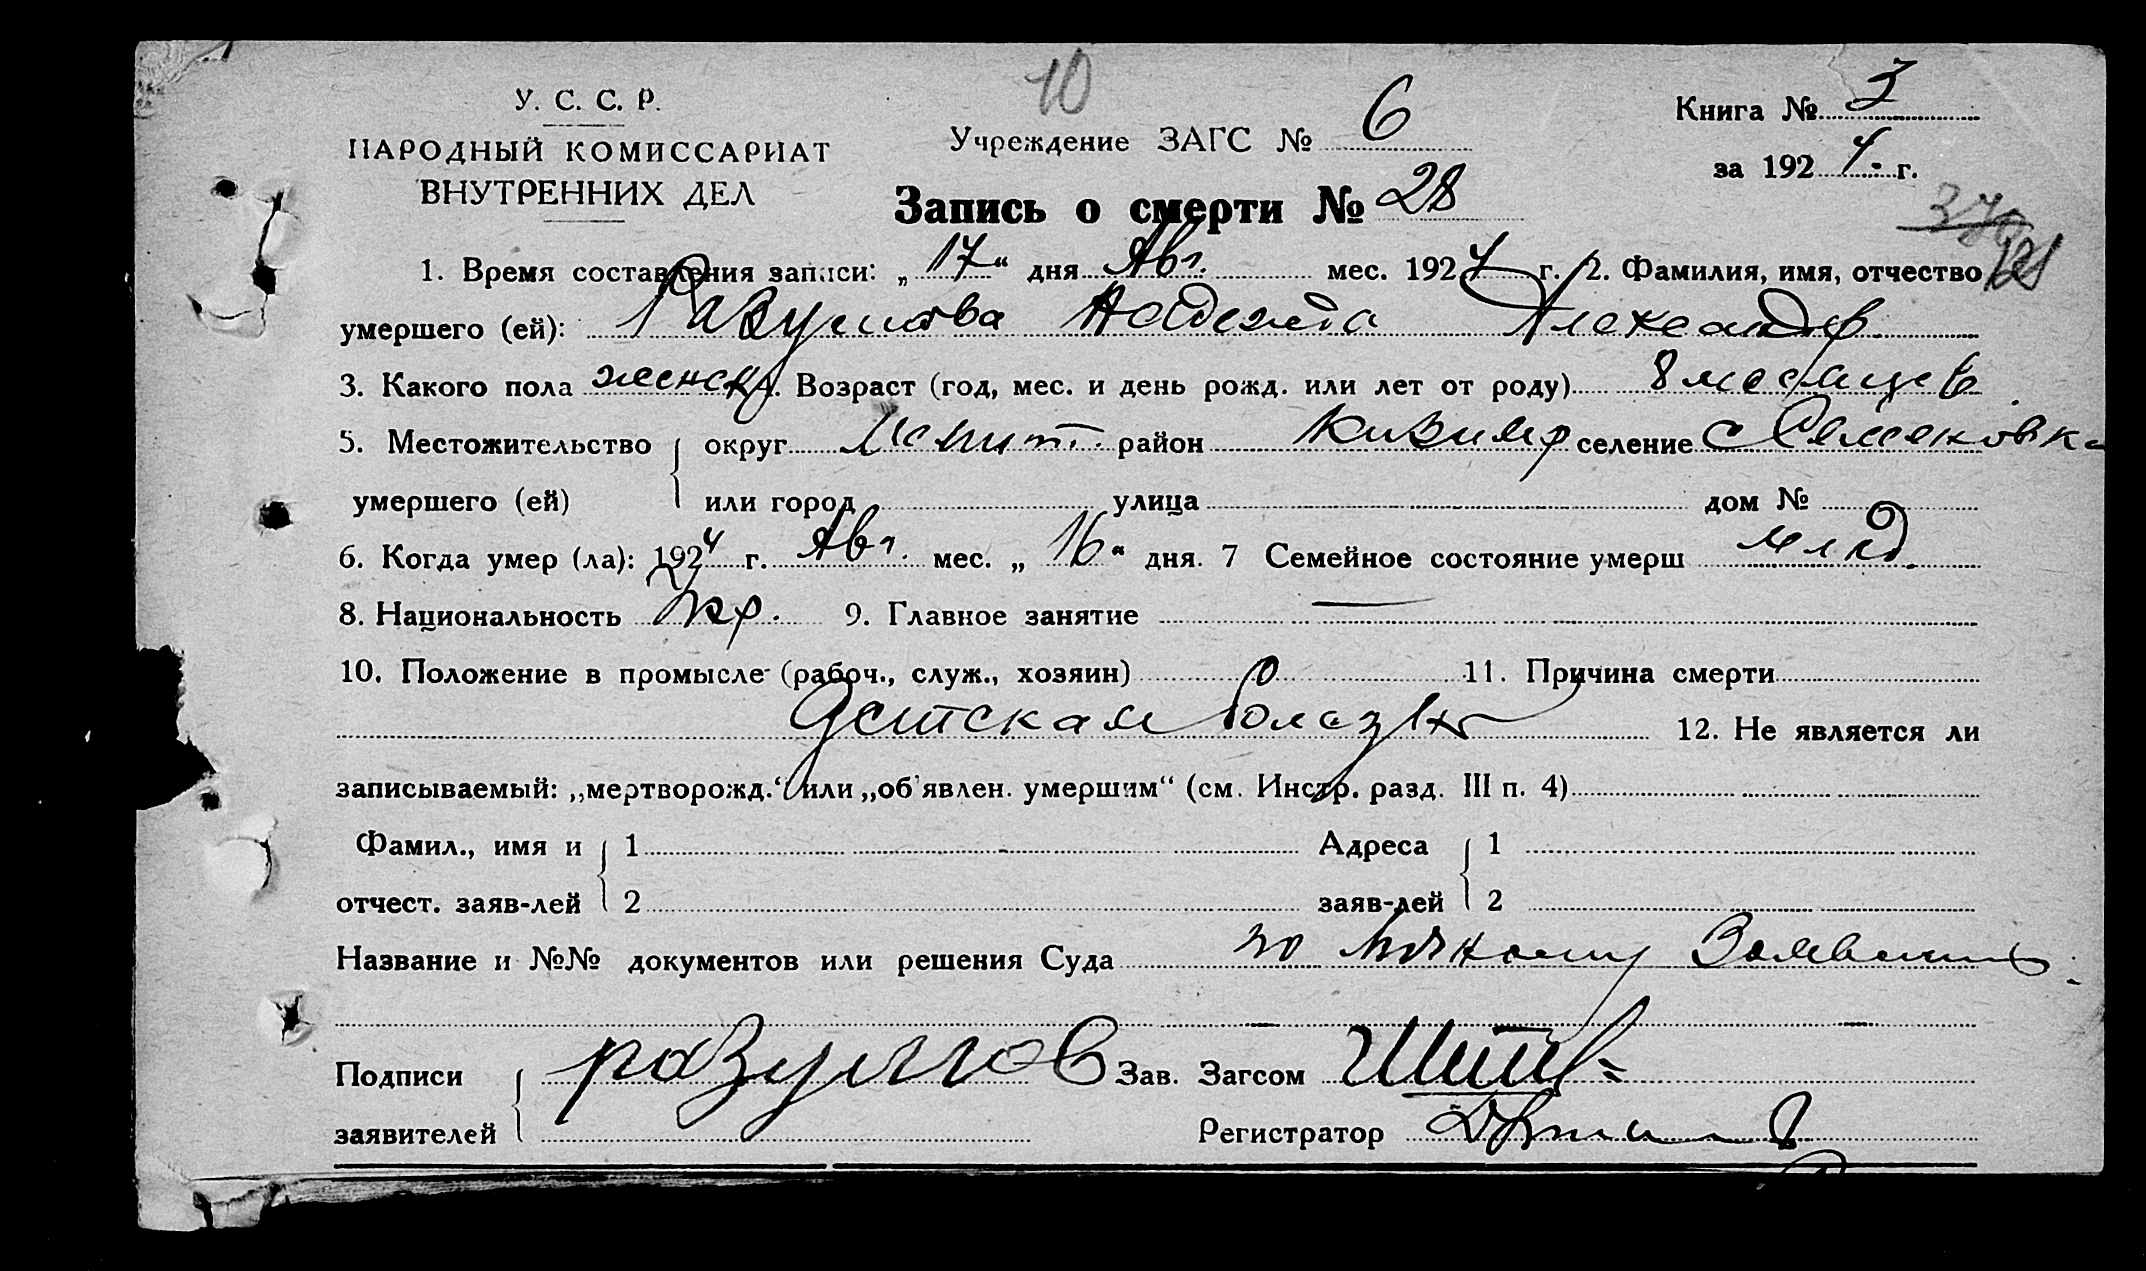 10
У. С. С. Р.
НАРОДНЫЙ КОМИССАРИАТ
ВНУТРЕННИХ ДЕЛ
Учреждение ЗАГС № 6
Книга № 3
за 1924 г.
Запись о смерти № 28
121
1. Время составления записи: „17“ дня Авг. мес. 1924 г. 2. Фамилия, имя, отчество
умершего (ей): Разумова Надежда Александр
3. Какого пола женск 4. Возраст (год, мес. и день рожд. или лет от роду) 8 месяцев
5. Местожительство округ район селение с Семеновка
умершего (ей) или город улица дом №
6. Когда умер (ла): 1924 г. Авг. мес. „16“ дня. 7 Семейное состояние умерш млад.
8. Национальность Укр. 9. Главное занятие —
10. Положение в промысле (рабоч., служ., хозяин) 11. Причина смерти
Детская болезнь 12. Не является ли
записываемый: „мертворожд.“ или „об'явлен. умершим“ (см. Инстр. разд. III п. 4)
Фамил., имя и 1 Адреса 1
отчест. заяв-лей 2 заяв-лей 2
Название и №№ документов или решения Суда по личному
Подписи разумов Зав. Загсом
заявителей Регистратор